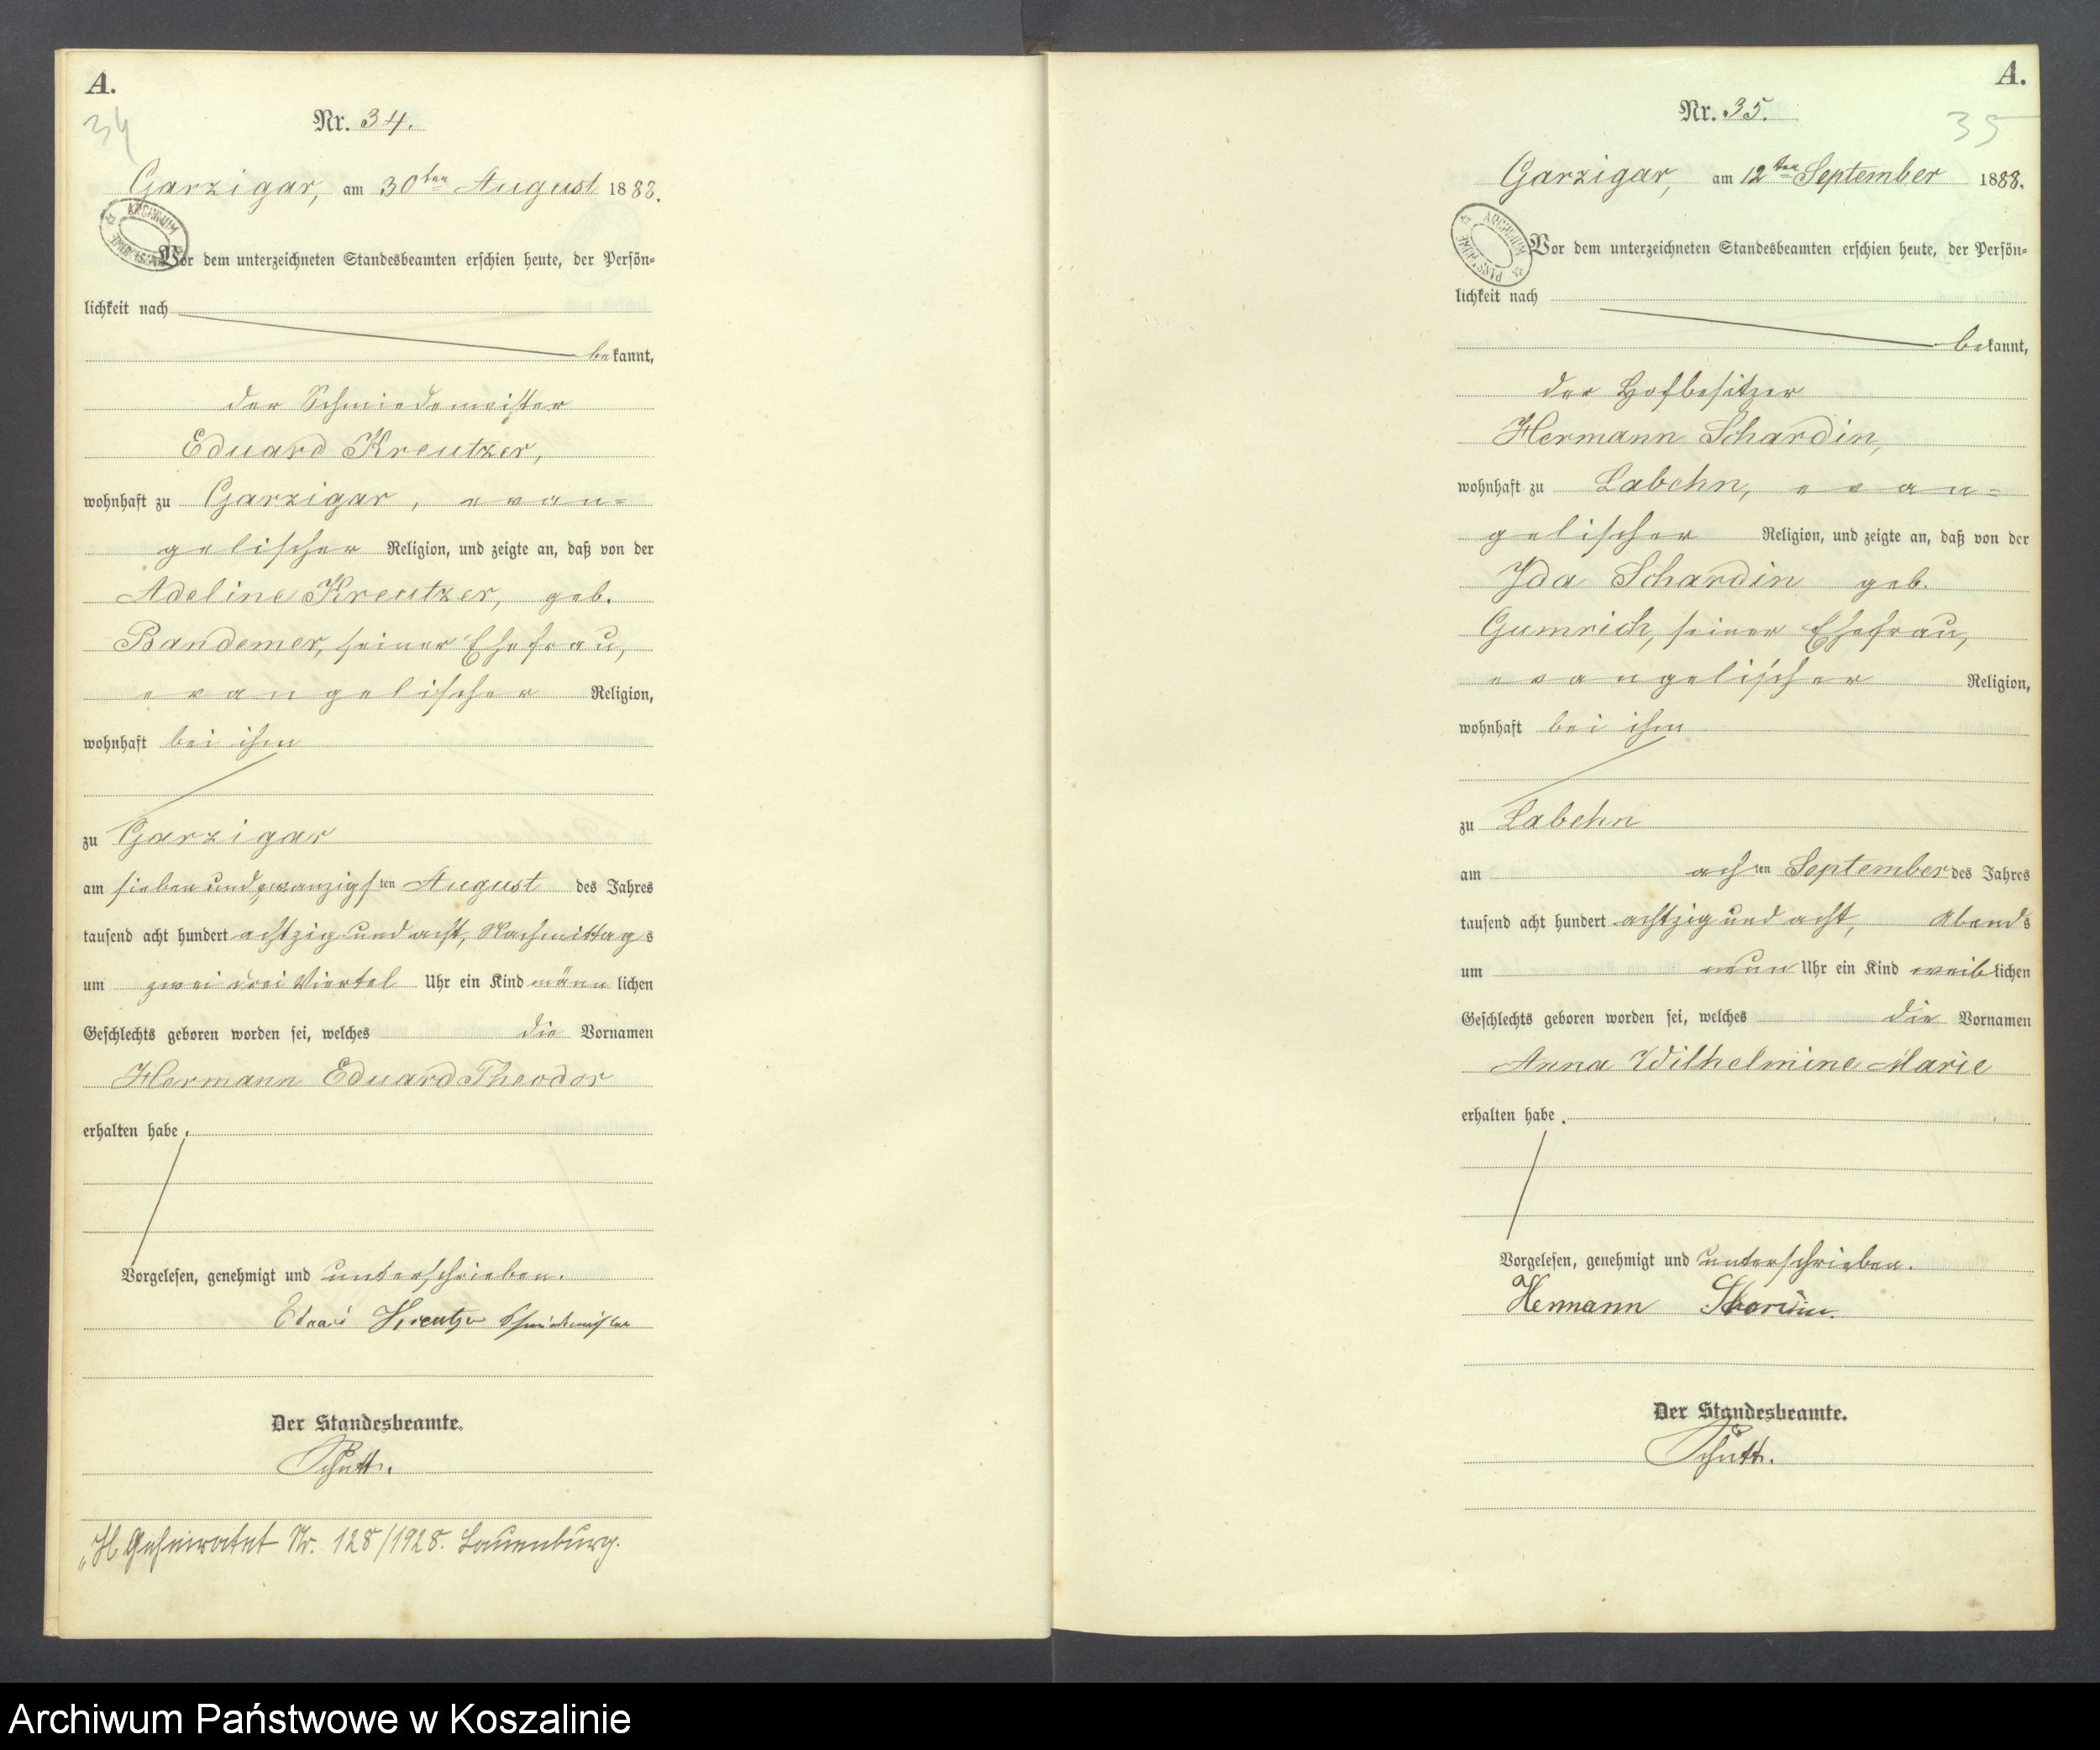 A.
34
Nr. 34.
Garzigar, am 30ten August 1888.
ARCHIWUM PAŃSTWOWE
Vor dem unterzeichneten Standesbeamten erschien heute, der Persön=
lichkeit nach
bekannt,
der Schmiedemeister
Eduard Kreutzer,
wohnhaft zu Garzigar, evan=
gelischer Religion, und zeigte an, daß von der
Adeline Kreutzer, geb.
Bandemer, seiner Ehefrau,
evangelischer Religion,
wohnhaft bei ihm
zu Garzigar
am sieben und zwanzigsten August des Jahres
tausend acht hundert achtzig und acht, Nachmittags
um zwei drei Viertel Uhr ein Kind männlichen
Geschlechts geboren worden sei, welches die Vornamen
Hermann Eduard Theodor
erhalten habe.
Vorgelesen, genehmigt und unterschrieben.
Eduard Kreutzer Schmiedemeister
Der Standesbeamte.
Schütt.
"H. Geheiratet Nr. 128/1928. Lauenburg.
A.
35
Nr. 35.
Garzigar, am 12ten September 1888.
ARCHIWUM PAŃSTWOWE
Vor dem unterzeichneten Standesbeamten erschien heute, der Persön=
lichkeit nach
bekannt,
der Hofbesitzer
Hermann Schardin,
wohnhaft zu Labehn, evan=
gelischer Religion, und zeigte an, daß von der
Ida Schardin geb.
Gumrich, seiner Ehefrau,
evangelischer Religion,
wohnhaft bei ihm
zu Labehn
am achten September des Jahres
tausend acht hundert achtzig und acht, Abends
um neun Uhr ein Kind weiblichen
Geschlechts geboren worden sei, welches die Vornamen
Anna Wilhelmine Marie
erhalten habe.
Vorgelesen, genehmigt und unterschrieben.
Hermann Schardin.
Der Standesbeamte.
Schütt.
Archiwum Państwowe w Koszalinie